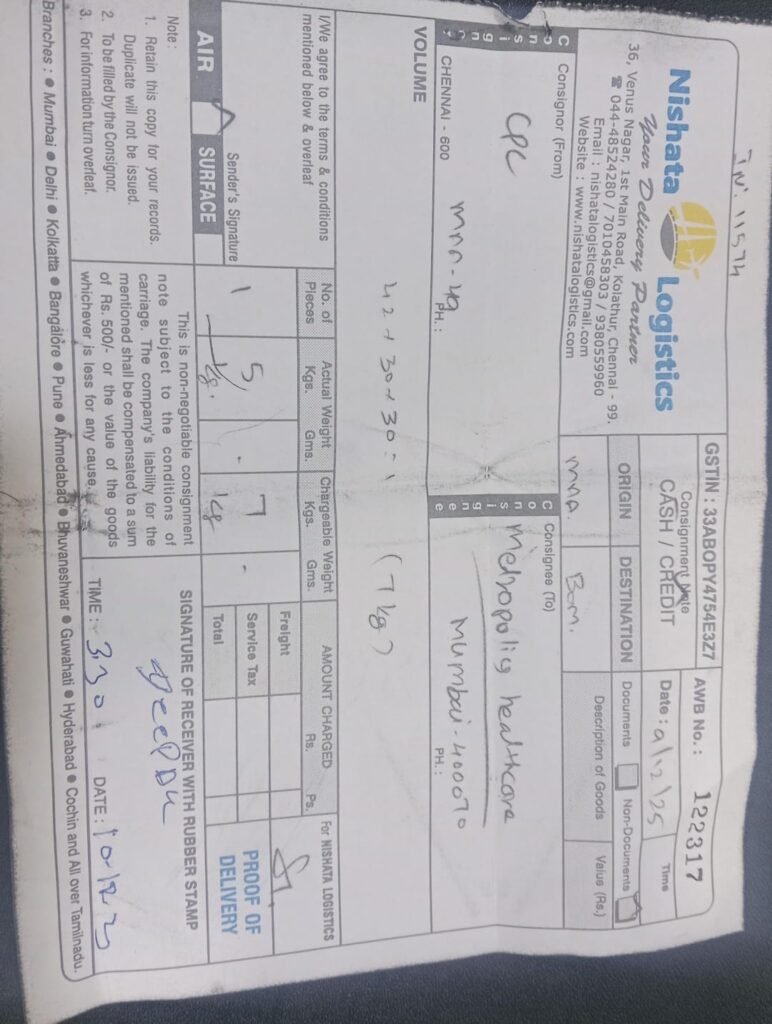 IN'. 11574
Nishata Logistics
Your Delivery Partner
36, Venus Nagar, 1st Main Road, Kolathur, Chennai - 99.
☎ 044-48524280 / 7010458303 / 9380559960
Email : nishatalogistics@gmail.com
Website : www.nishatalogistics.com
GSTIN : 33ABOPY4754E3Z7
Consignment Note
CASH / CREDIT
AWB No.: 122317
Date : 9/12/25
Time
ORIGIN
DESTINATION
Documents
Non-Documents
maa.
Bom.
Description of Goods
Value (Rs.)
Consignor
Consignor (From)
CPC
maa - 49
CHENNAI - 600
PH.:
Consignee
Consignee (To)
Metropolis healthcare
Mumbai - 400070
PH.:
VOLUME
42 x 30 x 30 = 1
(7 kg)
I/We agree to the terms & conditions
mentioned below & overleaf
Sender's Signature
No. of Pieces
Actual Weight
Kgs. Gms.
Chargeable Weight
Kgs. Gms.
AMOUNT CHARGED
Rs. Ps.
For NISHATA LOGISTICS
1
5 kg.
7 kg
Freight
Service Tax
Total
PROOF OF
DELIVERY
AIR
SURFACE
Note :
1. Retain this copy for your records.
Duplicate will not be issued.
2. To be filled by the Consignor.
3. For information turn overleaf.
This is non-negotiable consignment
note subject to the conditions of
carriage. The company's liability for the
mentioned shall be compensated to a sum
of Rs. 500/- or the value of the goods
whichever is less for any cause.
SIGNATURE OF RECEIVER WITH RUBBER STAMP
TIME : 330
DATE : 10-12
Branches : ● Mumbai ● Delhi ● Kolkatta ● Bangalore ● Pune ● Ahmedabad ● Bhuvaneshwar ● Guwahati ● Hyderabad ● Cochin and All over Tamilnadu.